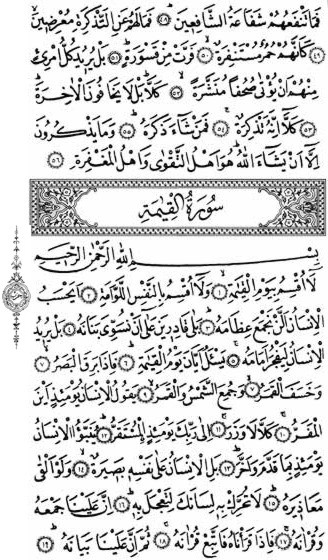 فَمَا تَنْفَعُهُمْ شَفَاعَةُ الشَّافِعِينَ ﴿٤٨﴾ فَمَا لَهُمْ عَنِ التَّذْكِرَةِ مُعْرِضِينَ
﴿٤٩﴾ كَأَنَّهُمْ حُمُرٌ مُسْتَنْفِرَةٌ ﴿٥٠﴾ فَرَّتْ مِنْ قَسْوَرَةٍ ﴿٥١﴾ بَلْ يُرِيدُ كُلُّ امْرِئٍ
مِنْهُمْ أَنْ يُؤْتَى صُحُفًا مُنَشَّرَةً ﴿٥٢﴾ كَلَّا بَلْ لَا يَخَافُونَ الْآخِرَةَ
﴿٥٣﴾ كَلَّا إِنَّهُ تَذْكِرَةٌ ﴿٥٤﴾ فَمَنْ شَاءَ ذَكَرَهُ ﴿٥٥﴾ وَمَا يَذْكُرُونَ
إِلَّا أَنْ يَشَاءَ اللَّهُ هُوَ أَهْلُ التَّقْوَى وَأَهْلُ الْمَغْفِرَةِ ﴿٥٦﴾
سُورَةُ الْقِيٰمَةِ
بِسْمِ اللَّهِ الرَّحْمٰنِ الرَّحِيمِ
لَا أُقْسِمُ بِيَوْمِ الْقِيٰمَةِ ﴿١﴾ وَلَا أُقْسِمُ بِالنَّفْسِ اللَّوَّامَةِ ﴿٢﴾ أَيَحْسَبُ
الْإِنْسَانُ أَلَّنْ نَجْمَعَ عِظَامَهُ ﴿٣﴾ بَلَى قَادِرِينَ عَلَى أَنْ نُسَوِّيَ بَنَانَهُ ﴿٤﴾ بَلْ يُرِيدُ
الْإِنْسَانُ لِيَفْجُرَ أَمَامَهُ ﴿٥﴾ يَسْئَلُ أَيَّانَ يَوْمُ الْقِيٰمَةِ ﴿٦﴾ فَإِذَا بَرِقَ الْبَصَرُ ﴿٧﴾
وَخَسَفَ الْقَمَرُ ﴿٨﴾ وَجُمِعَ الشَّمْسُ وَالْقَمَرُ ﴿٩﴾ يَقُولُ الْإِنْسَانُ يَوْمَئِذٍ أَيْنَ
الْمَفَرُّ ﴿١٠﴾ كَلَّا لَا وَزَرَ ﴿١١﴾ إِلَى رَبِّكَ يَوْمَئِذٍ الْمُسْتَقَرُّ ﴿١٢﴾ يُنَبَّؤُ الْإِنْسَانُ
يَوْمَئِذٍ بِمَا قَدَّمَ وَأَخَّرَ ﴿١٣﴾ بَلِ الْإِنْسَانُ عَلَى نَفْسِهِ بَصِيرَةٌ ﴿١٤﴾ وَلَوْ أَلْقَى
مَعَاذِيرَهُ ﴿١٥﴾ لَا تُحَرِّكْ بِهِ لِسَانَكَ لِتَعْجَلَ بِهِ ﴿١٦﴾ إِنَّ عَلَيْنَا جَمْعَهُ
وَقُرْآنَهُ ﴿١٧﴾ فَإِذَا قَرَأْنَاهُ فَاتَّبِعْ قُرْآنَهُ ﴿١٨﴾ ثُمَّ إِنَّ عَلَيْنَا بَيَانَهُ ﴿١٩﴾